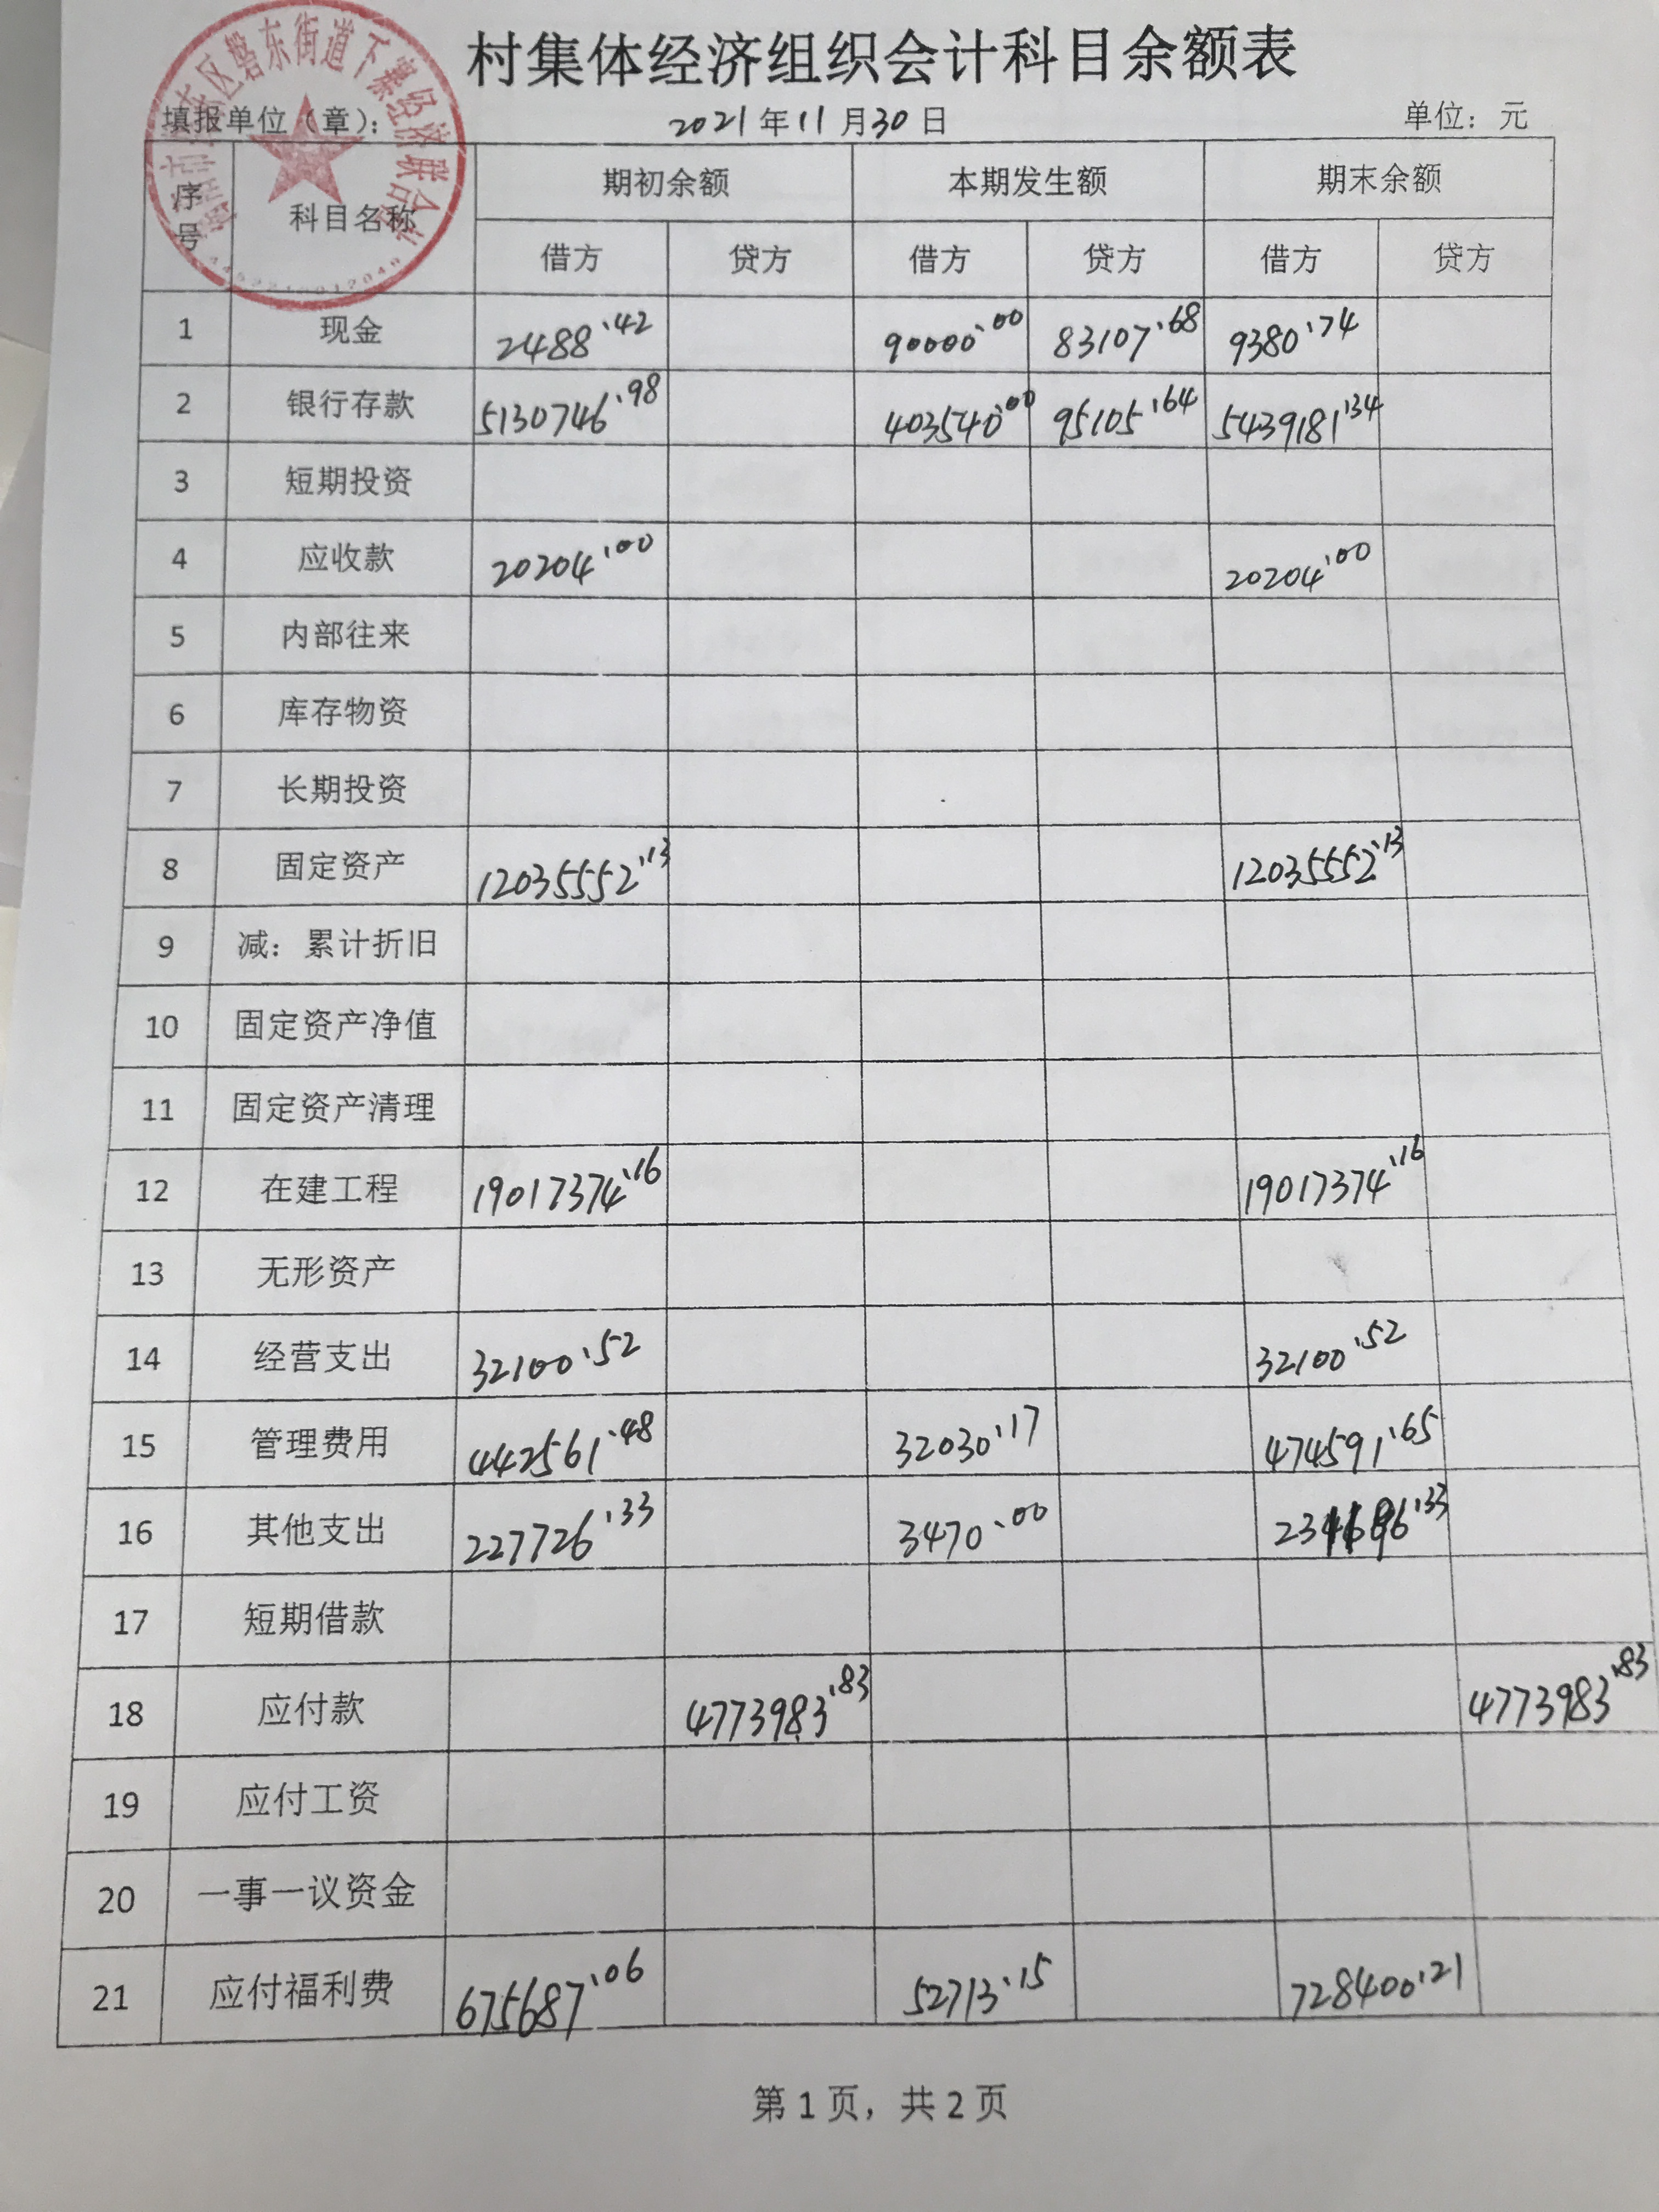 村集体经济组织会计科目余额表
区磐东街道下寨经济联合
填报单位（章）： 2021年11月30日 单位：元
序号 科目名称 期初余额 本期发生额 期末余额
借方 贷方 借方 贷方 借方 贷方
1 现金 2488.42 90000.00 83107.68 9380.74
2 银行存款 5130746.98 403540.00 95105.64 5439181.34
3 短期投资
4 应收款 20204.00 20204.00
5 内部往来
6 库存物资
7 长期投资
8 固定资产 12035552.13 12035552.13
9 减：累计折旧
10 固定资产净值
11 固定资产清理
12 在建工程 19017374.16 19017374.16
13 无形资产
14 经营支出 32100.52 32100.52
15 管理费用 442561.48 32030.17 474591.65
16 其他支出 227726.33 3470.00
17 短期借款
18 应付款 4773983.83 4773983.83
19 应付工资
20 一事一议资金
21 应付福利费 675687.06 52713.15 728400.21
第1页，共2页